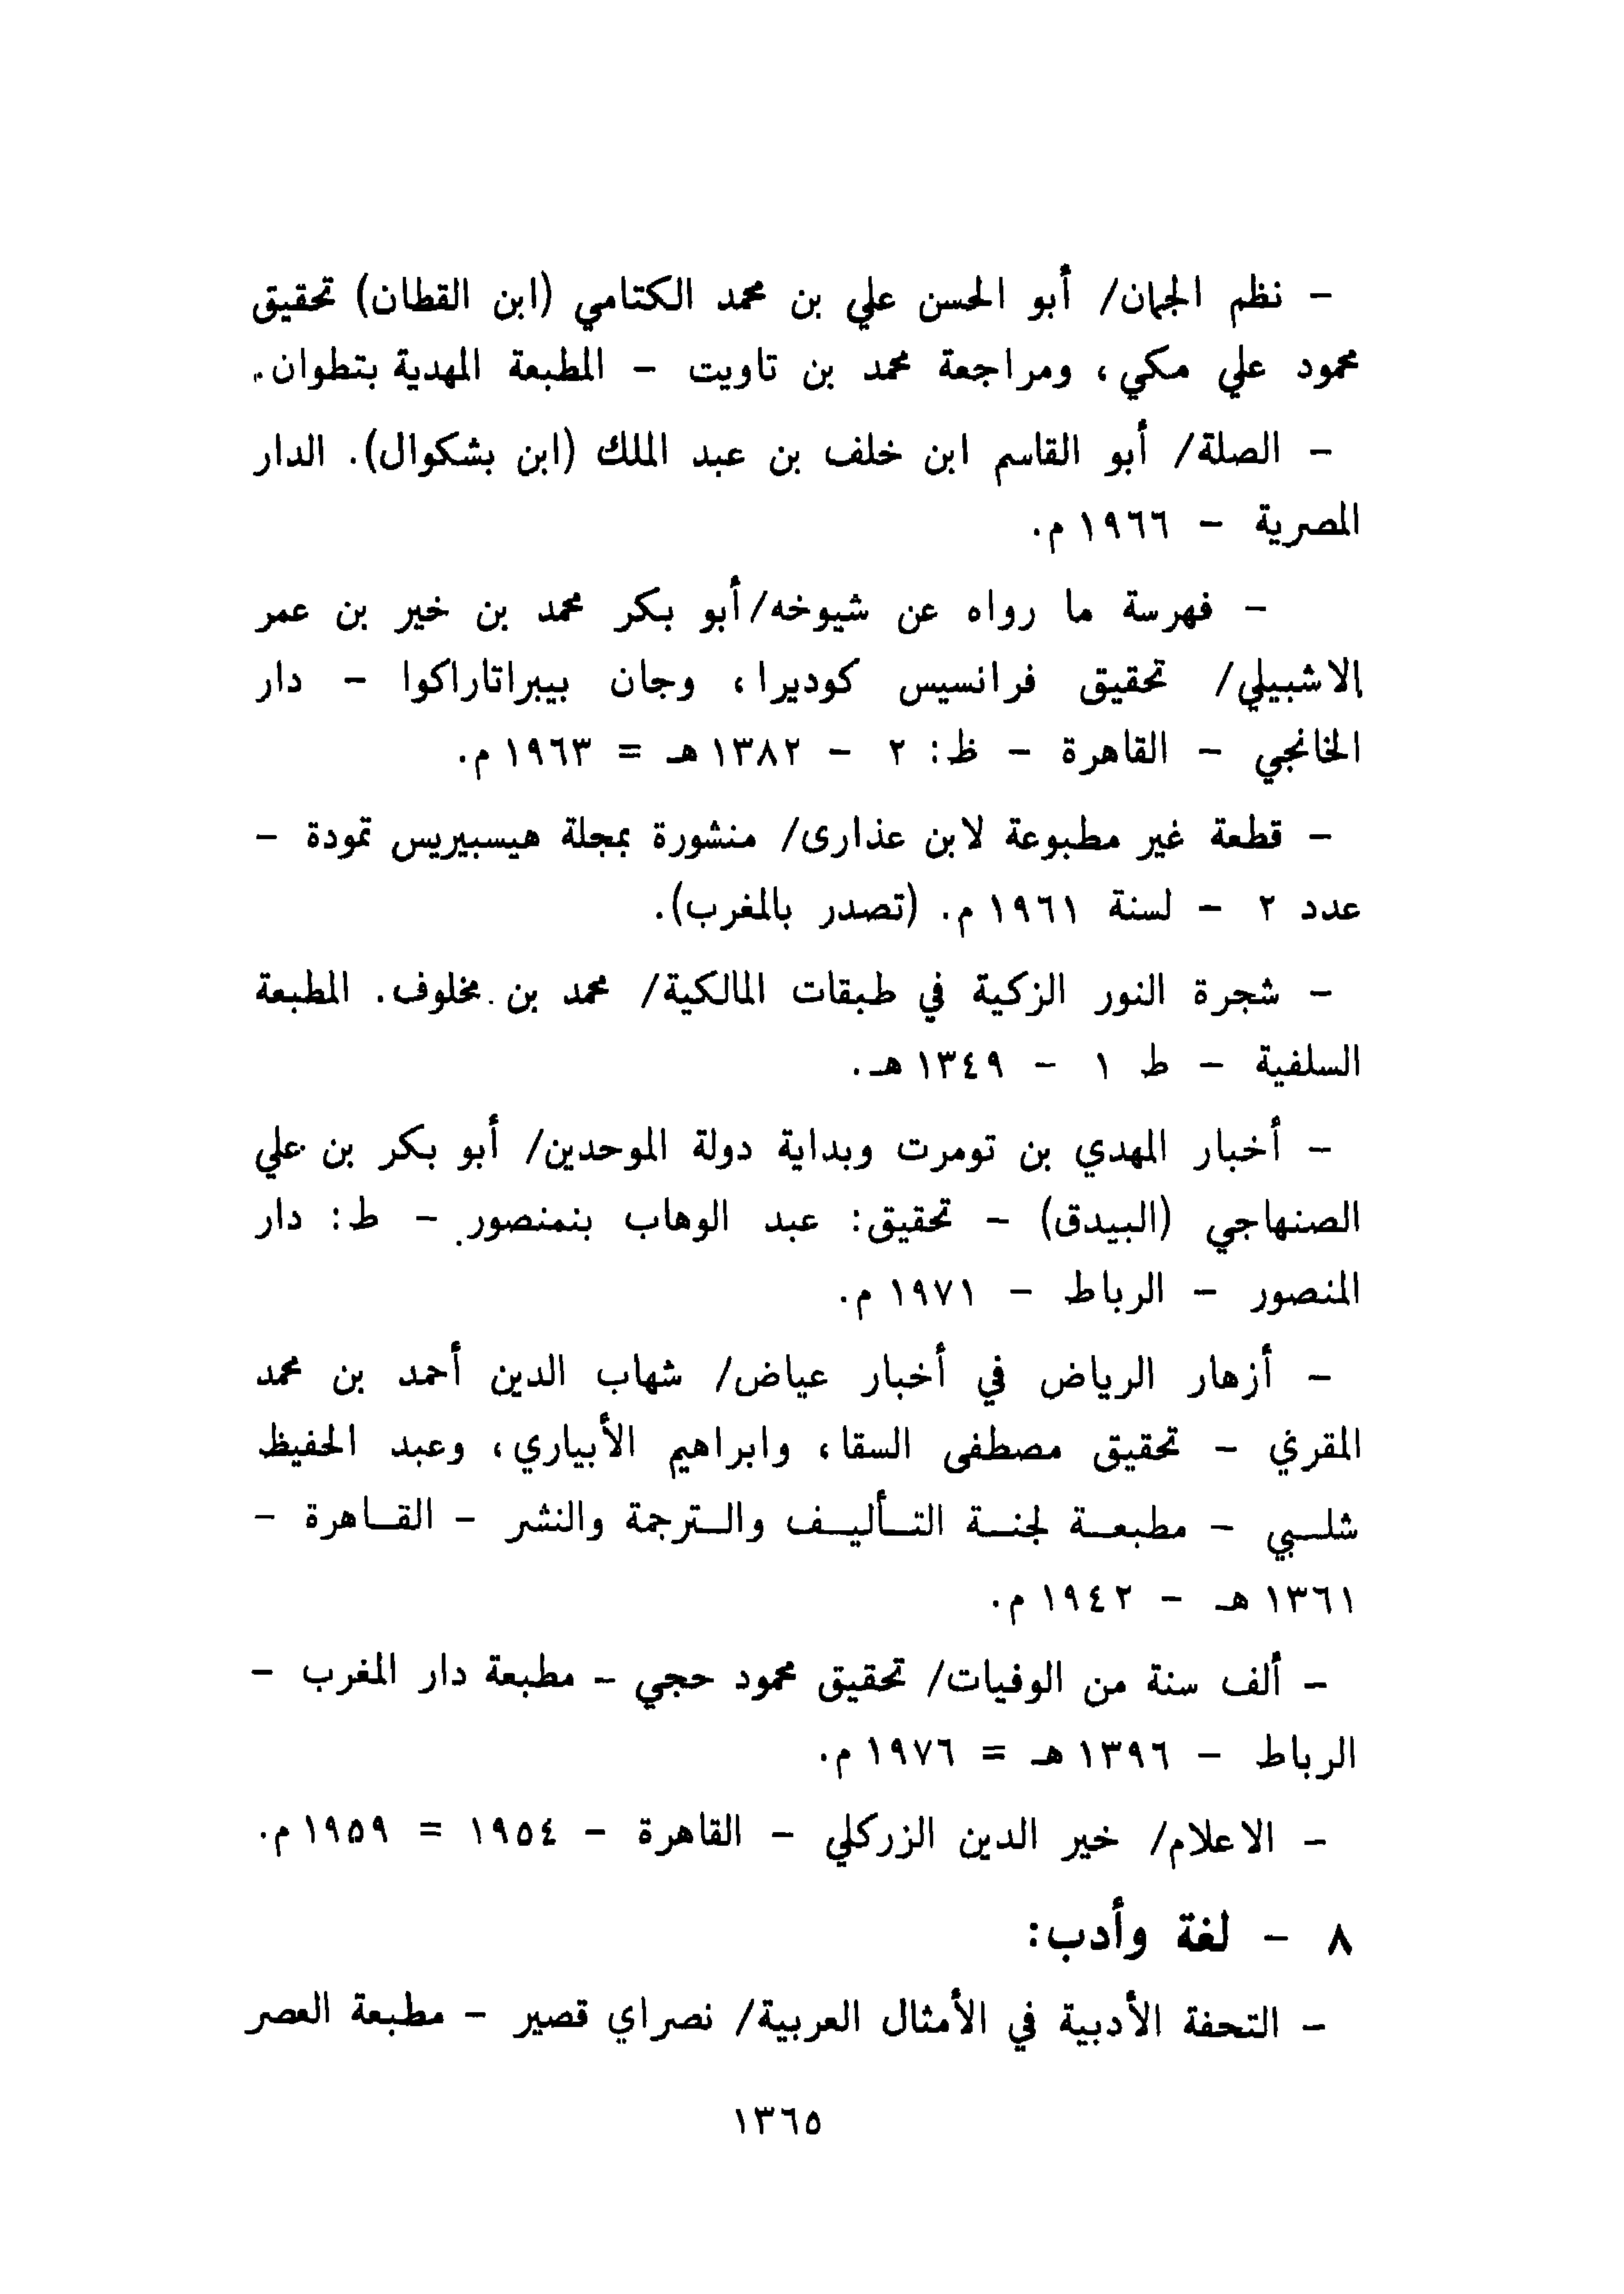 - نظم الجمان/ أبو الحسن علي بن محمد الكتامي (ابن القطان) تحقيق
محمود علي مكي، ومراجعة محمد بن تاويت - المطبعة المهدية بتطوان.
- الصلة/ أبو القاسم ابن خلف بن عبد الملك (ابن بشكوال). الدار
المصرية - ١٩٦٦ م.
- فهرسة ما رواه عن شيوخه/أبو بكر محمد بن خير بن عمر
الاشبيلي/ تحقيق فرانسيس كوديرا، وجان بيبراتاراكوا - دار
الخانجي - القاهرة - ظ: ٢ - ١٣٨٢ هـ = ١٩٦٣ م.
- قطعة غير مطبوعة لابن عذارى/ منشورة بمجلة هيسبيريس تمودة -
عدد ٢ - لسنة ١٩٦١ م. (تصدر بالمغرب).
- شجرة النور الزكية في طبقات المالكية/ محمد بن مخلوف. المطبعة
السلفية - ط ١ - ١٣٤٩ هـ.
- أخبار المهدي بن تومرت وبداية دولة الموحدين/ أبو بكر بن علي
الصنهاجي (البيدق) - تحقيق: عبد الوهاب بنمنصور - ط: دار
المنصور - الرباط - ١٩٧١ م.
- أزهار الرياض في أخبار عياض/ شهاب الدين أحمد بن محمد
المقري - تحقيق مصطفى السقا، وابراهيم الأبياري، وعبد الحفيظ
شلبي - مطبعة لجنة التأليف والترجمة والنشر - القاهرة -
١٣٦١ هـ - ١٩٤٢ م.
- ألف سنة من الوفيات/ تحقيق محمود حجي - مطبعة دار المغرب -
الرباط - ١٣٩٦ هـ = ١٩٧٦ م.
- الاعلام/ خير الدين الزركلي - القاهرة - ١٩٥٤ = ١٩٥٩ م.
٨ - لغة وأدب:
- التحفة الأدبية في الأمثال العربية/ نصراي قصير - مطبعة العصر
١٣٦٥